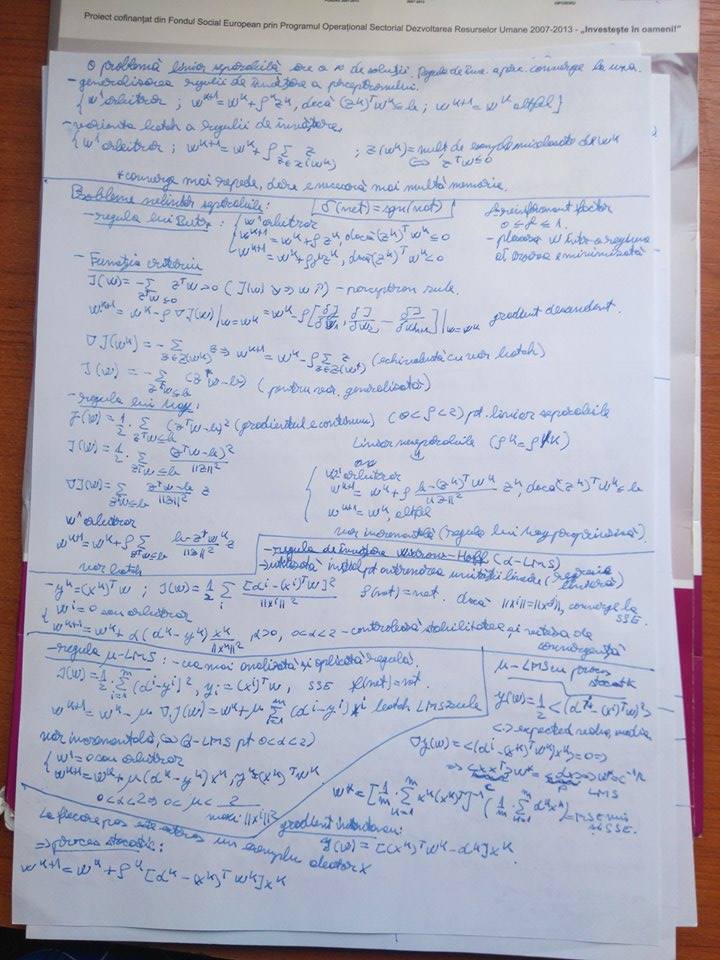 Proiect cofinanțat din Fondul Social European prin Programul Operațional Sectorial Dezvoltarea Resurselor Umane 2007-2013 - „Investește în oameni!"
O problemă liniar separabilă are o ∞ de soluții. Regula de înv. a perc. converge la una.
- generalizarea regulii de învățare a perceptronului.
{ w¹ arbitrar ; wᵏ⁺¹ = wᵏ + ρᵏ zᵏ, dacă (zᵏ)ᵀwᵏ ≤ b ; wᵏ⁺¹ = wᵏ altfel }
- varianta batch a regulii de învățare.
{ w¹ arbitrar ; wᵏ⁺¹ = wᵏ + ρ Σ_{z∈Z(wᵏ)} z ; Z(wᵏ) = mult. de exemple misclasate de wᵏ
⇔ zᵀw ≤ 0
* converge mai repede, dar e necesară mai multă memorie.
Probleme neliniar separabile: f(net) = sgn(net)
- regula lui Butz: { w¹ arbitrar
wᵏ⁺¹ = wᵏ + ρ zᵏ, dacă (zᵏ)ᵀ wᵏ ≤ 0
reinforcement factor
0 ≤ γ ≤ 1.
- plasarea w într-o regiune
al eroarea e minimizată
- Funcția criteriu
J(w) = - Σ_{zᵀw≤0} zᵀw
- perceptron rule.
wᵏ⁺¹ = wᵏ - ρ ∇J(w)|_{w=wᵏ} = wᵏ - ρ [δJ/δw₁, δJ/δw₂ ... δJ/δwₙ₊₁]|_{w=wᵏ} gradient descendent.
∇J(wᵏ) = - Σ_{z∈Z(wᵏ)} z ⇒ wᵏ⁺¹ = wᵏ - ρ Σ_{z∈Z(wᵏ)} z (echivalentă cu var batch)
J(w) = - Σ_{zᵀw≤b} (zᵀw - b) (pentru var. generalizată)
- regula lui May:
J(w) = 1/2 · Σ_{zᵀw≤b} (zᵀw - b)² (gradientul e continuu) (0 < ρ < 2) pt. liniar separabile
J(w) = 1/2 · Σ_{zᵀw≤b} (zᵀw - b)² / ||z||²
Liniar neseparabile (ρᵏ = ρ/K)
∇J(w) = Σ_{zᵀw≤b} (zᵀw - b) / ||z||² z
{ w¹ arbitrar
wᵏ⁺¹ = wᵏ + ρ (b - (zᵏ)ᵀwᵏ) / ||zᵏ||² zᵏ, dacă (zᵏ)ᵀwᵏ ≤ b
wᵏ⁺¹ = wᵏ, altfel
w¹ arbitrar
wᵏ⁺¹ = wᵏ + ρ Σ_{zᵀw≤b} (b - zᵀwᵏ) / ||z||² z
var incrementală (regula lui May propriuzisă).
var batch
- regula de învățare Widrow-Hoff (α-LMS)
- utilizată inițial pt antrenarea unității liniare (regresia liniară)
- yᵏ = (xᵏ)ᵀw ; J(w) = 1/2 Σ_i [dⁱ - (xⁱ)ᵀw]² / ||xⁱ||² f(net) = net. dacă ||xⁱ|| = ||xʲ||, converge la SSE.
{ w¹ = 0 sau arbitrar
wᵏ⁺¹ = wᵏ + α (dᵏ - yᵏ) xᵏ/||xᵏ||² α>0, 0<α<2 - controlează stabilitatea și rata de convergență
- regula μ-LMS: - cea mai analizată și aplicată regulă.
J(w) = 1/2 · Σ_{i=1}^m (dⁱ - yᵢ)², yᵢ = (xⁱ)ᵀw, SSE f(net) = net.
wᵏ⁺¹ = wᵏ - μ ∇J(w) = wᵏ + μ Σ_{i=1}^m (dⁱ - yᵢ) xⁱ batch LMS rule
var incrementală, (α-LMS pt 0<α<2)
{ w¹ = 0 sau arbitrar
wᵏ⁺¹ = wᵏ + μ (dᵏ - yᵏ) xᵏ, yᵏ = (xᵏ)ᵀ wᵏ
0<α<2 ⇒ 0 < μ < 2 / max ||xⁱ||²
μ-LMS cu proces stocastic
J(w) = 1/2 <(dⁱ - (xⁱ)ᵀw)²>
<·> expected value, media
∇J(w) = <(dⁱ - (xᵏ)ᵀwᵏ) xᵏ> = 0 ⇒
LMS
wᵏ = [1/m · Σ_{k=1}^m xᵏ(xᵏ)ᵀ]⁻¹ (1/m · Σ_{k=1}^m dᵏxᵏ)
La fiecare pas este extras un exemplu aleator x
⇒ proces stocastic
gradient instantaneu
J(w) = [(xᵏ)ᵀwᵏ - dᵏ] xᵏ
wᵏ⁺¹ = wᵏ + ρᵏ [dᵏ - (xᵏ)ᵀ wᵏ] xᵏ